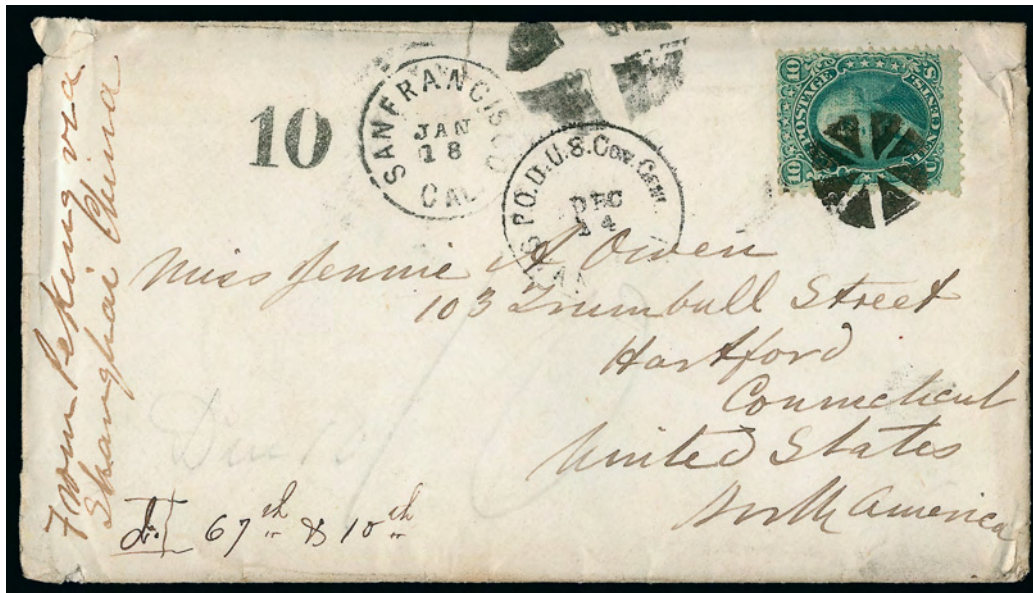 From Peking via
Shanghai China
10
SAN FRANCISCO
JAN
18
CAL
P.O.D.U.S. Con. Genl.
DEC
4
10 U.S. POSTAGE 10
TEN CENTS
Miss Jennie A Owen
103 Trumbull Street
Hartford
Connecticut
United States
North America
Due 10
67th & 10th